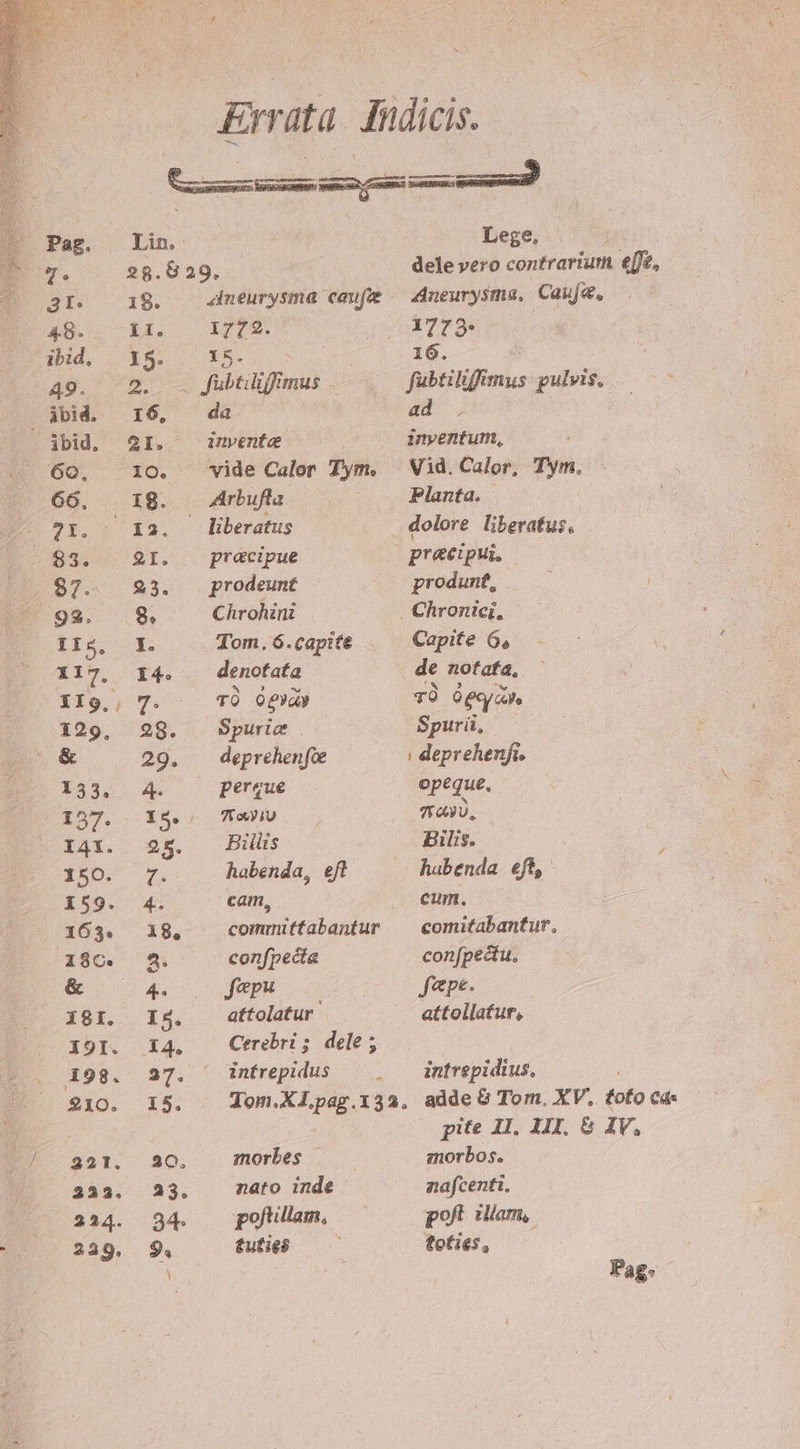 Errata Indicis.
Pag. Lin. Lege,
7. 28.&29. dele vero contrarium eſſe,
31. 18. Aneurysma cauſæ Aneurysma, Cauſæ,
48. 11. 1772. 1773.
ibid. 15. 15. 16.
49. 2. ſubtiliſſimus ſubtiliſſimus pulvis.
ibid. 16, da ad
ibid, 21. inventæ inventum,
60, 10. vide Calor Tym. Vid. Calor, Tym.
66, 18. Arbuſta Planta.
71. 12. liberatus dolore liberatus.
83. 21. præcipue præcipui.
87. 23. prodeunt produnt,
92. 8, Chrohini Chronici,
115. 1. Tom. 6. capite Capite 6,
117. 14. denotata de notata,
119., 7. τὸ ὀργὰν τὸ ὀργὰν.
129, 28. Spuriæ Spurii,
& 29. deprehenſæ deprehenſi.
133. 4. perque opeque.
137. 15. πανιυ πανὺ,
141. 25. Billis Bilis.
150. 7. habenda, eſt habenda eſt,
159. 4. cam, cum.
163. 18, committabantur comitabantur.
180. 3. conſpecta conſpectu.
& 4. ſæpu ſæpe.
181. 15. attolatur attollatur,
191. 14, Cerebri; dele;
198. 27. intrepidus intrepidius.
210. 15. Tom.XI.pag.132, adde & Tom. XV. toto ca-
pite II, III, & IV,
221. 20. morbes morbos.
222. 23. nato inde naſcenti.
224. 34. poſtillam, poſt illam,
229. 9. tuties toties,
Pag.